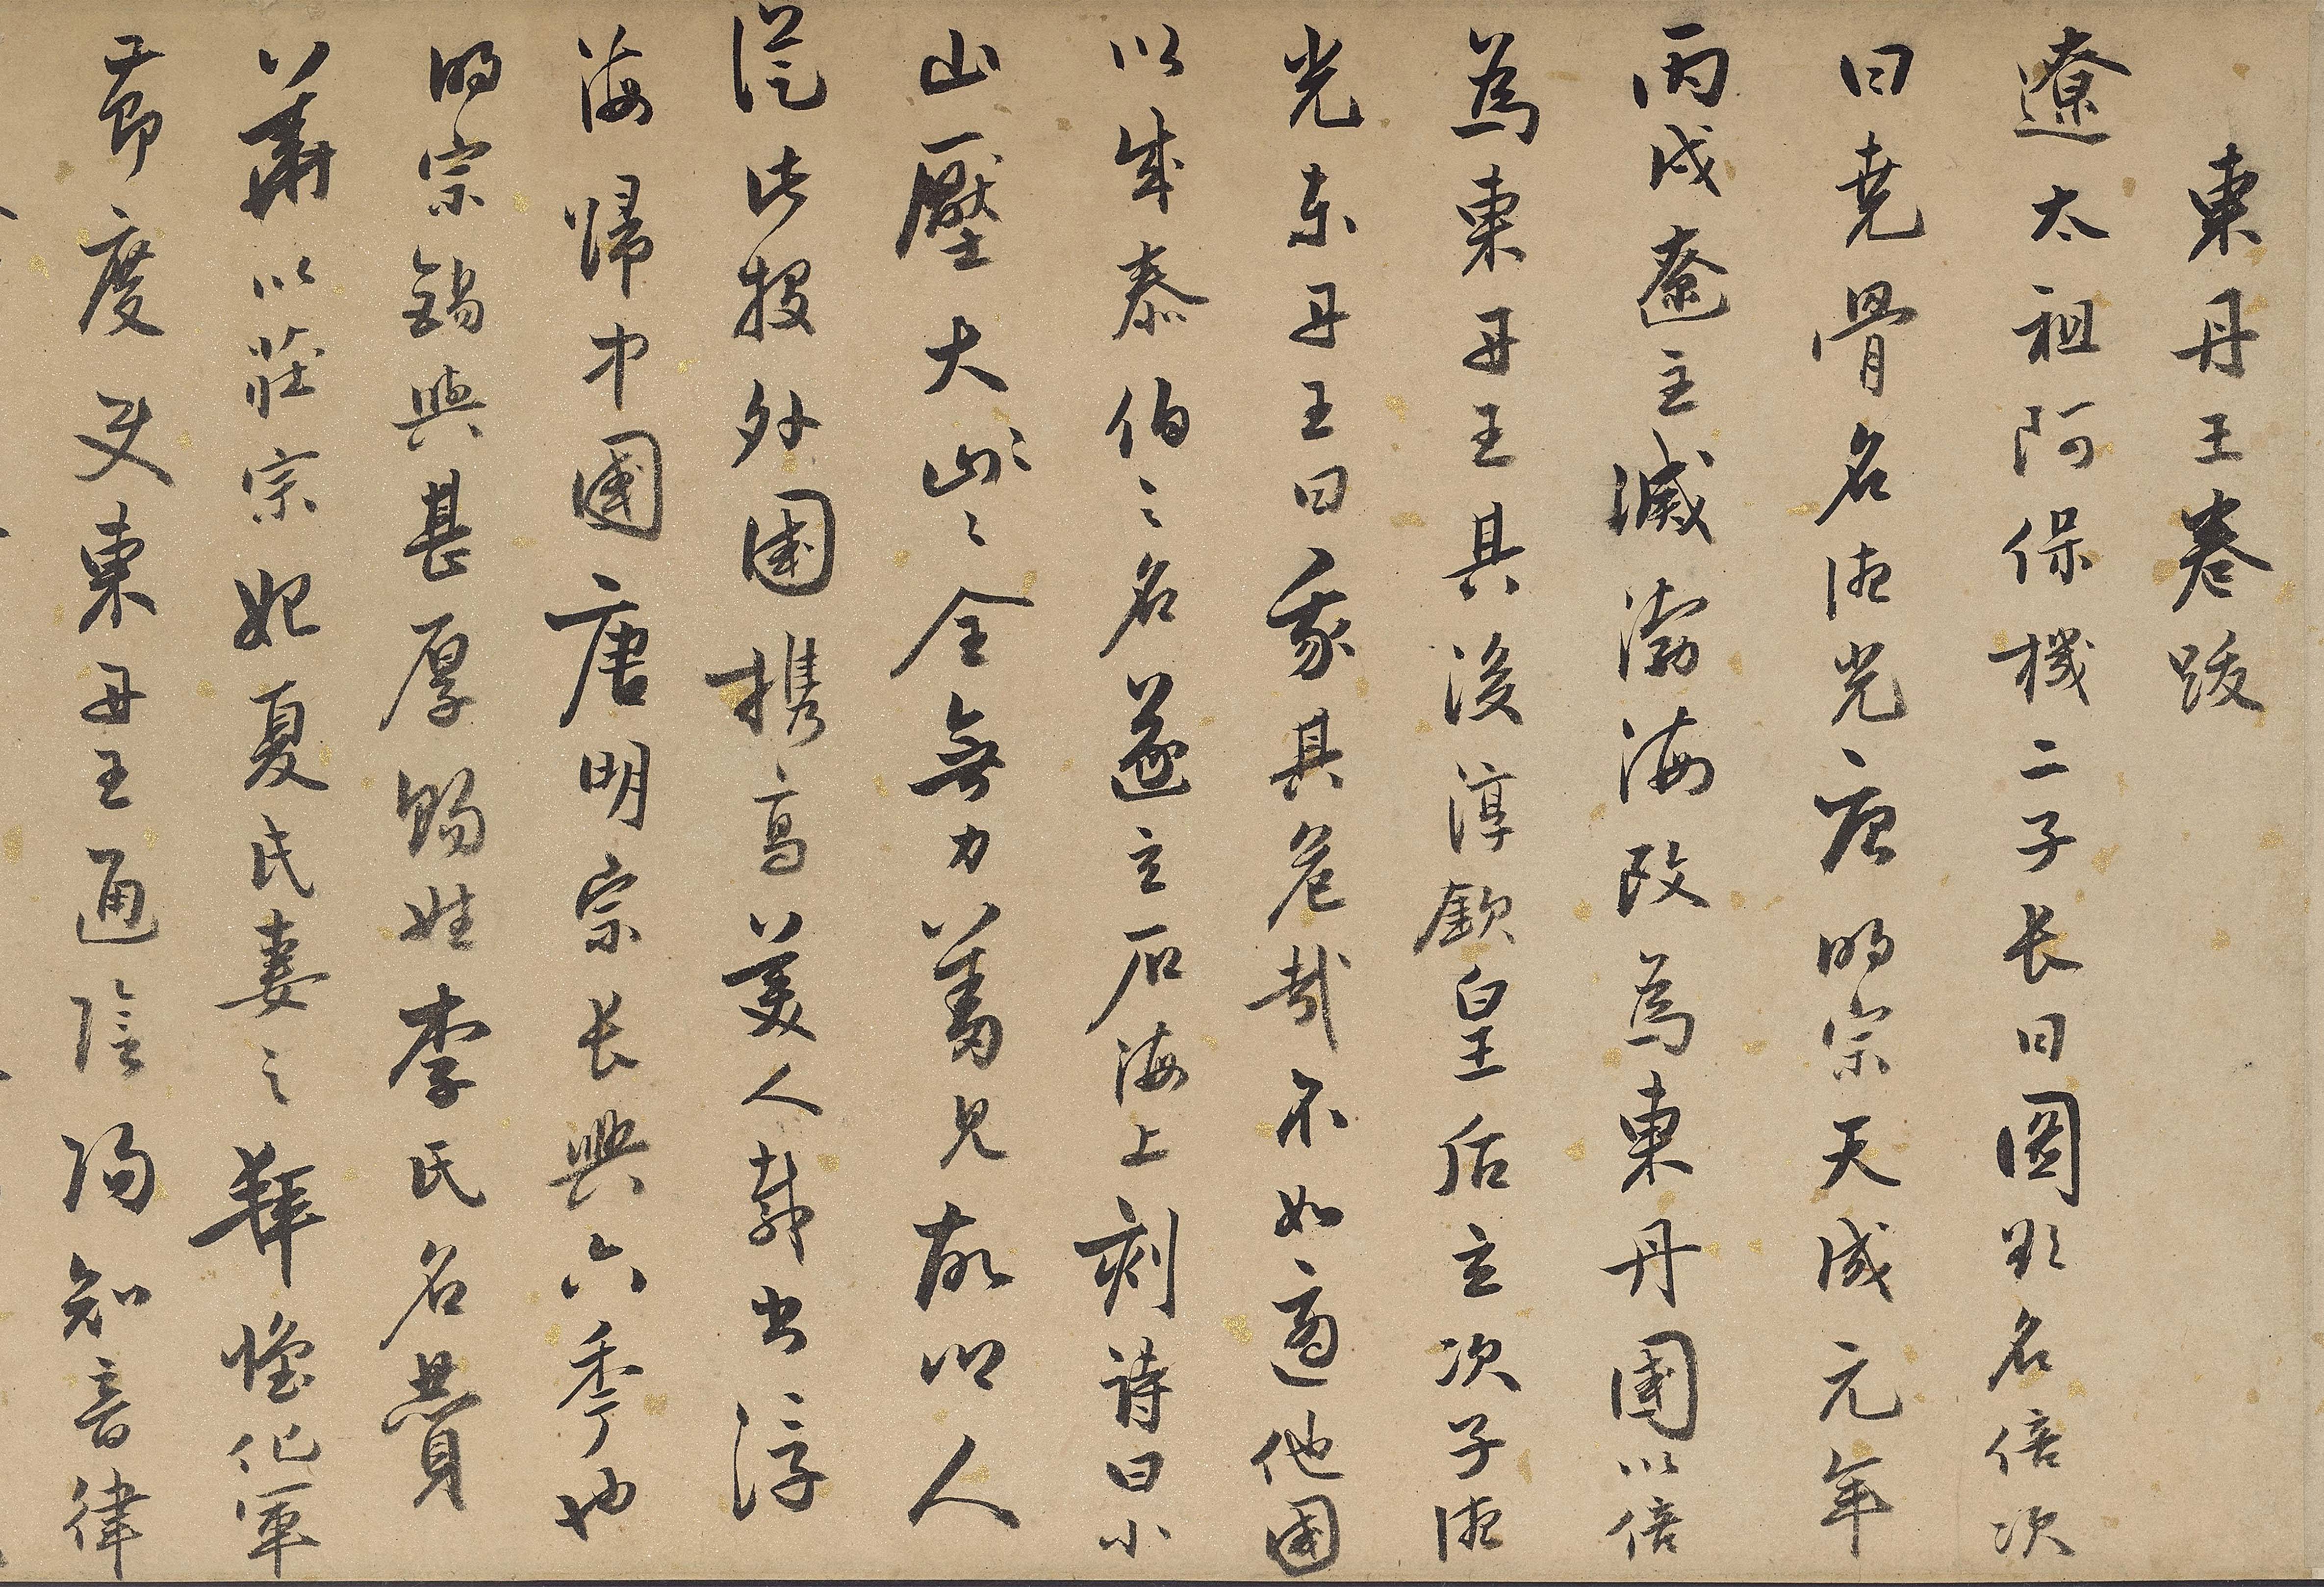 東丹王卷跋
遼太祖阿保機二子長曰圖欲名倍次
曰堯骨名德光唐明宗天成元年
丙戌遼主滅渤海改為東丹國以倍
為東丹王其後淳欽皇后立次子德
光東丹王曰我其危哉不如適他國
以成泰伯之名遂立石海上刻詩曰小
山壓大山〻〻全無力羞見故鄉人
從此投外國携高美人載書浮
海歸中國唐明宗長興六年也
明宗錫與甚厚賜姓李氏名贊
華以莊宗妃夏氏妻之拜懷化軍
節度使東丹王通陰陽知音律